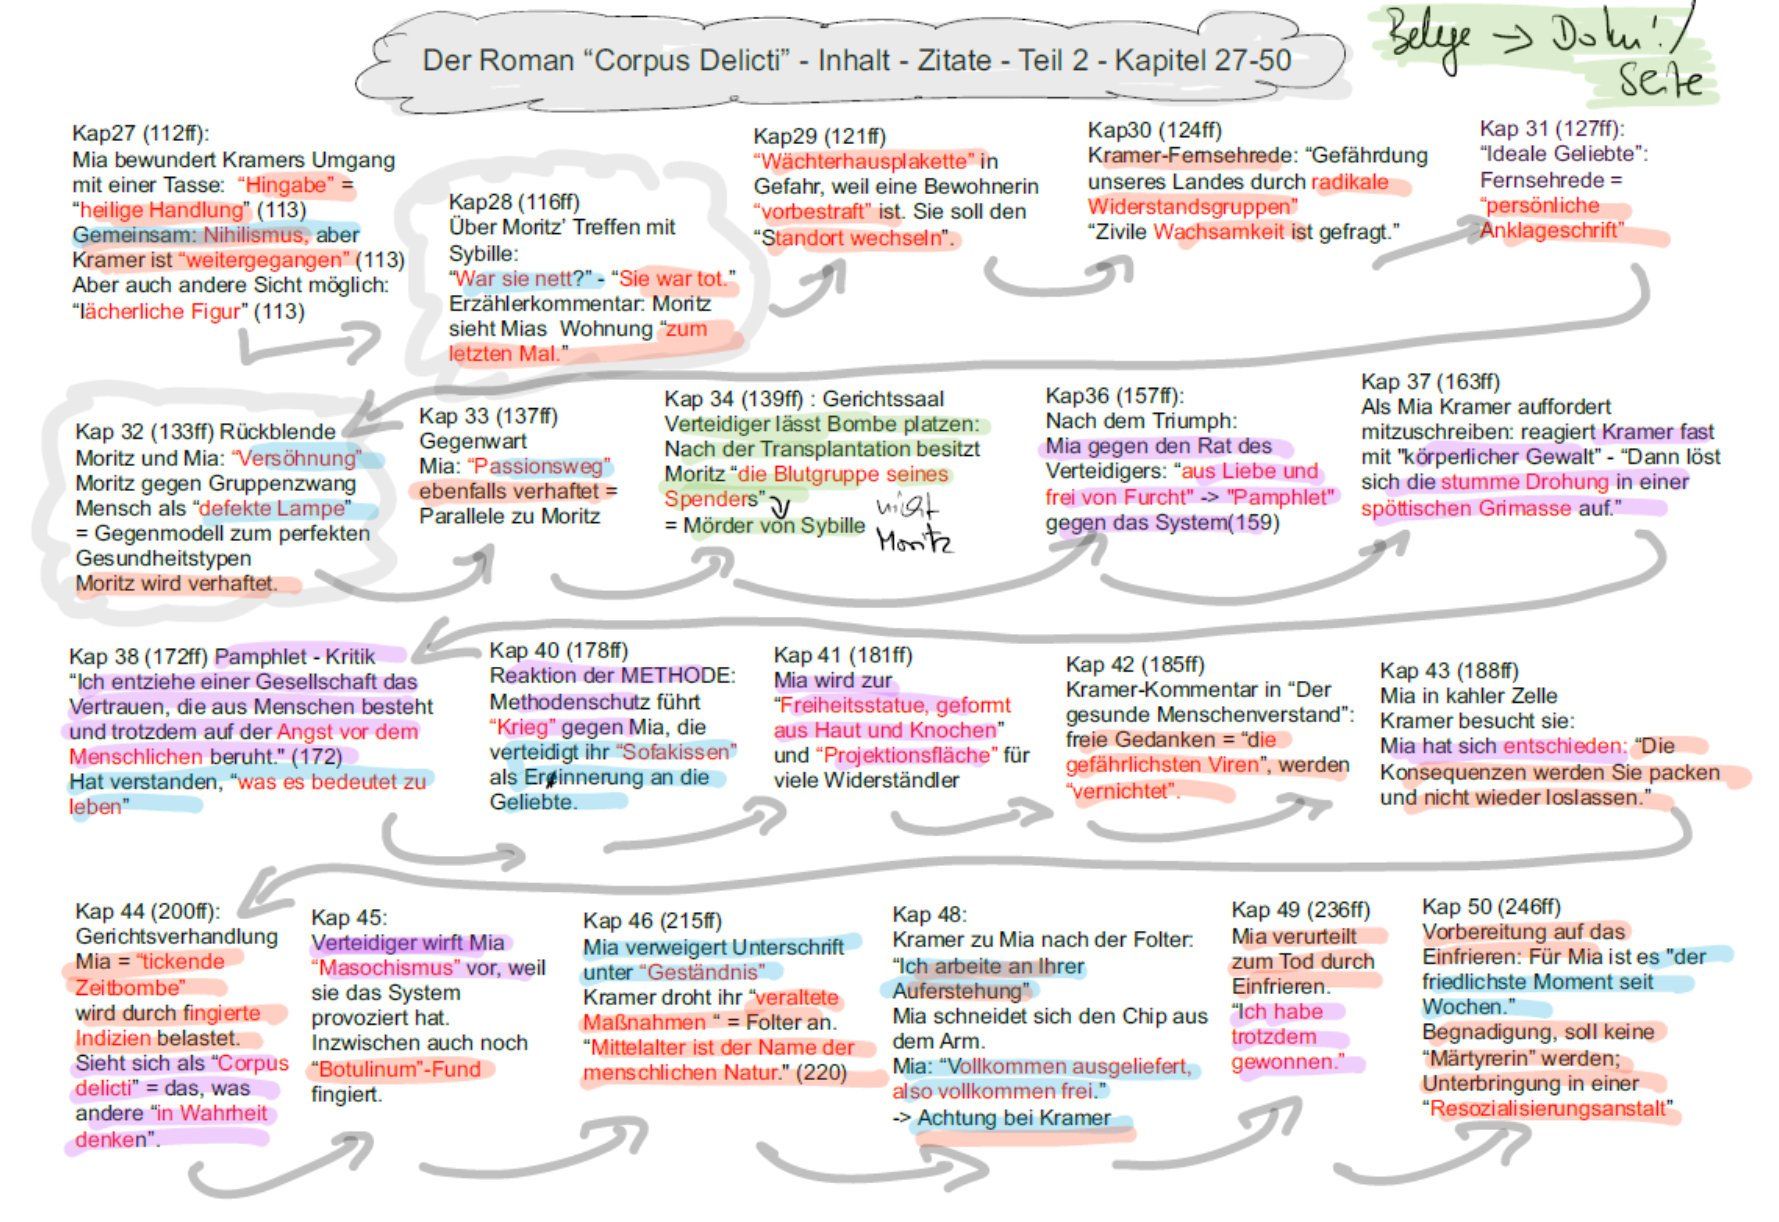 Der Roman “Corpus Delicti” - Inhalt - Zitate - Teil 2 - Kapitel 27-50
Belege → Doku! /
Seite
Kap27 (112ff):
Mia bewundert Kramers Umgang
mit einer Tasse: “Hingabe” =
“heilige Handlung” (113)
Gemeinsam: Nihilismus, aber
Kramer ist “weitergegangen” (113)
Aber auch andere Sicht möglich:
“lächerliche Figur” (113)
Kap28 (116ff)
Über Moritz’ Treffen mit
Sybille:
“War sie nett?” - “Sie war tot.”
Erzählerkommentar: Moritz
sieht Mias Wohnung “zum
letzten Mal.”
Kap29 (121ff)
“Wächterhausplakette” in
Gefahr, weil eine Bewohnerin
“vorbestraft” ist. Sie soll den
“Standort wechseln”.
Kap30 (124ff)
Kramer-Fernsehrede: “Gefährdung
unseres Landes durch radikale
Widerstandsgruppen”
“Zivile Wachsamkeit ist gefragt.”
Kap 31 (127ff):
“Ideale Geliebte”:
Fernsehrede =
“persönliche
Anklageschrift”
Kap 32 (133ff) Rückblende
Moritz und Mia: “Versöhnung”
Moritz gegen Gruppenzwang
Mensch als “defekte Lampe”
= Gegenmodell zum perfekten
Gesundheitstypen
Moritz wird verhaftet.
Kap 33 (137ff)
Gegenwart
Mia: “Passionsweg”
ebenfalls verhaftet =
Parallele zu Moritz
Kap 34 (139ff) : Gerichtssaal
Verteidiger lässt Bombe platzen:
Nach der Transplantation besitzt
Moritz “die Blutgruppe seines
Spenders”
= Mörder von Sybille
nicht
Moritz
Kap36 (157ff):
Nach dem Triumph:
Mia gegen den Rat des
Verteidigers: “aus Liebe und
frei von Furcht" -> "Pamphlet"
gegen das System(159)
Kap 37 (163ff)
Als Mia Kramer auffordert
mitzuschreiben: reagiert Kramer fast
mit "körperlicher Gewalt" - “Dann löst
sich die stumme Drohung in einer
spöttischen Grimasse auf.”
Kap 38 (172ff) Pamphlet - Kritik
“Ich entziehe einer Gesellschaft das
Vertrauen, die aus Menschen besteht
und trotzdem auf der Angst vor dem
Menschlichen beruht." (172)
Hat verstanden, “was es bedeutet zu
leben”
Kap 40 (178ff)
Reaktion der METHODE:
Methodenschutz führt
“Krieg” gegen Mia, die
verteidigt ihr “Sofakissen”
als Erinnerung an die
Geliebte.
Kap 41 (181ff)
Mia wird zur
“Freiheitsstatue, geformt
aus Haut und Knochen”
und “Projektionsfläche” für
viele Widerständler
Kap 42 (185ff)
Kramer-Kommentar in “Der
gesunde Menschenverstand”:
freie Gedanken = “die
gefährlichsten Viren”, werden
“vernichtet”.
Kap 43 (188ff)
Mia in kahler Zelle
Kramer besucht sie:
Mia hat sich entschieden: “Die
Konsequenzen werden Sie packen
und nicht wieder loslassen.”
Kap 44 (200ff):
Gerichtsverhandlung
Mia = “tickende
Zeitbombe”
wird durch fingierte
Indizien belastet.
Sieht sich als “Corpus
delicti” = das, was
andere “in Wahrheit
denken”.
Kap 45:
Verteidiger wirft Mia
“Masochismus” vor, weil
sie das System
provoziert hat.
Inzwischen auch noch
“Botulinum”-Fund
fingiert.
Kap 46 (215ff)
Mia verweigert Unterschrift
unter “Geständnis”
Kramer droht ihr “veraltete
Maßnahmen “ = Folter an.
“Mittelalter ist der Name der
menschlichen Natur." (220)
Kap 48:
Kramer zu Mia nach der Folter:
“Ich arbeite an Ihrer
Auferstehung”
Mia schneidet sich den Chip aus
dem Arm.
Mia: “Vollkommen ausgeliefert,
also vollkommen frei.”
-> Achtung bei Kramer
Kap 49 (236ff)
Mia verurteilt
zum Tod durch
Einfrieren.
“Ich habe
trotzdem
gewonnen.”
Kap 50 (246ff)
Vorbereitung auf das
Einfrieren: Für Mia ist es "der
friedlichste Moment seit
Wochen.”
Begnadigung, soll keine
“Märtyrerin” werden;
Unterbringung in einer
“Resozialisierungsanstalt”